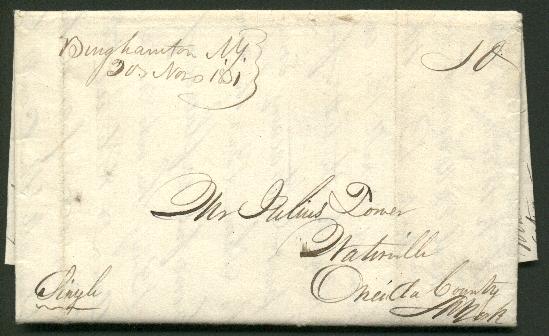 Binghamton NY
10
Nov
Mr Julius Tower
Waterville
Oneida County
N York
Single